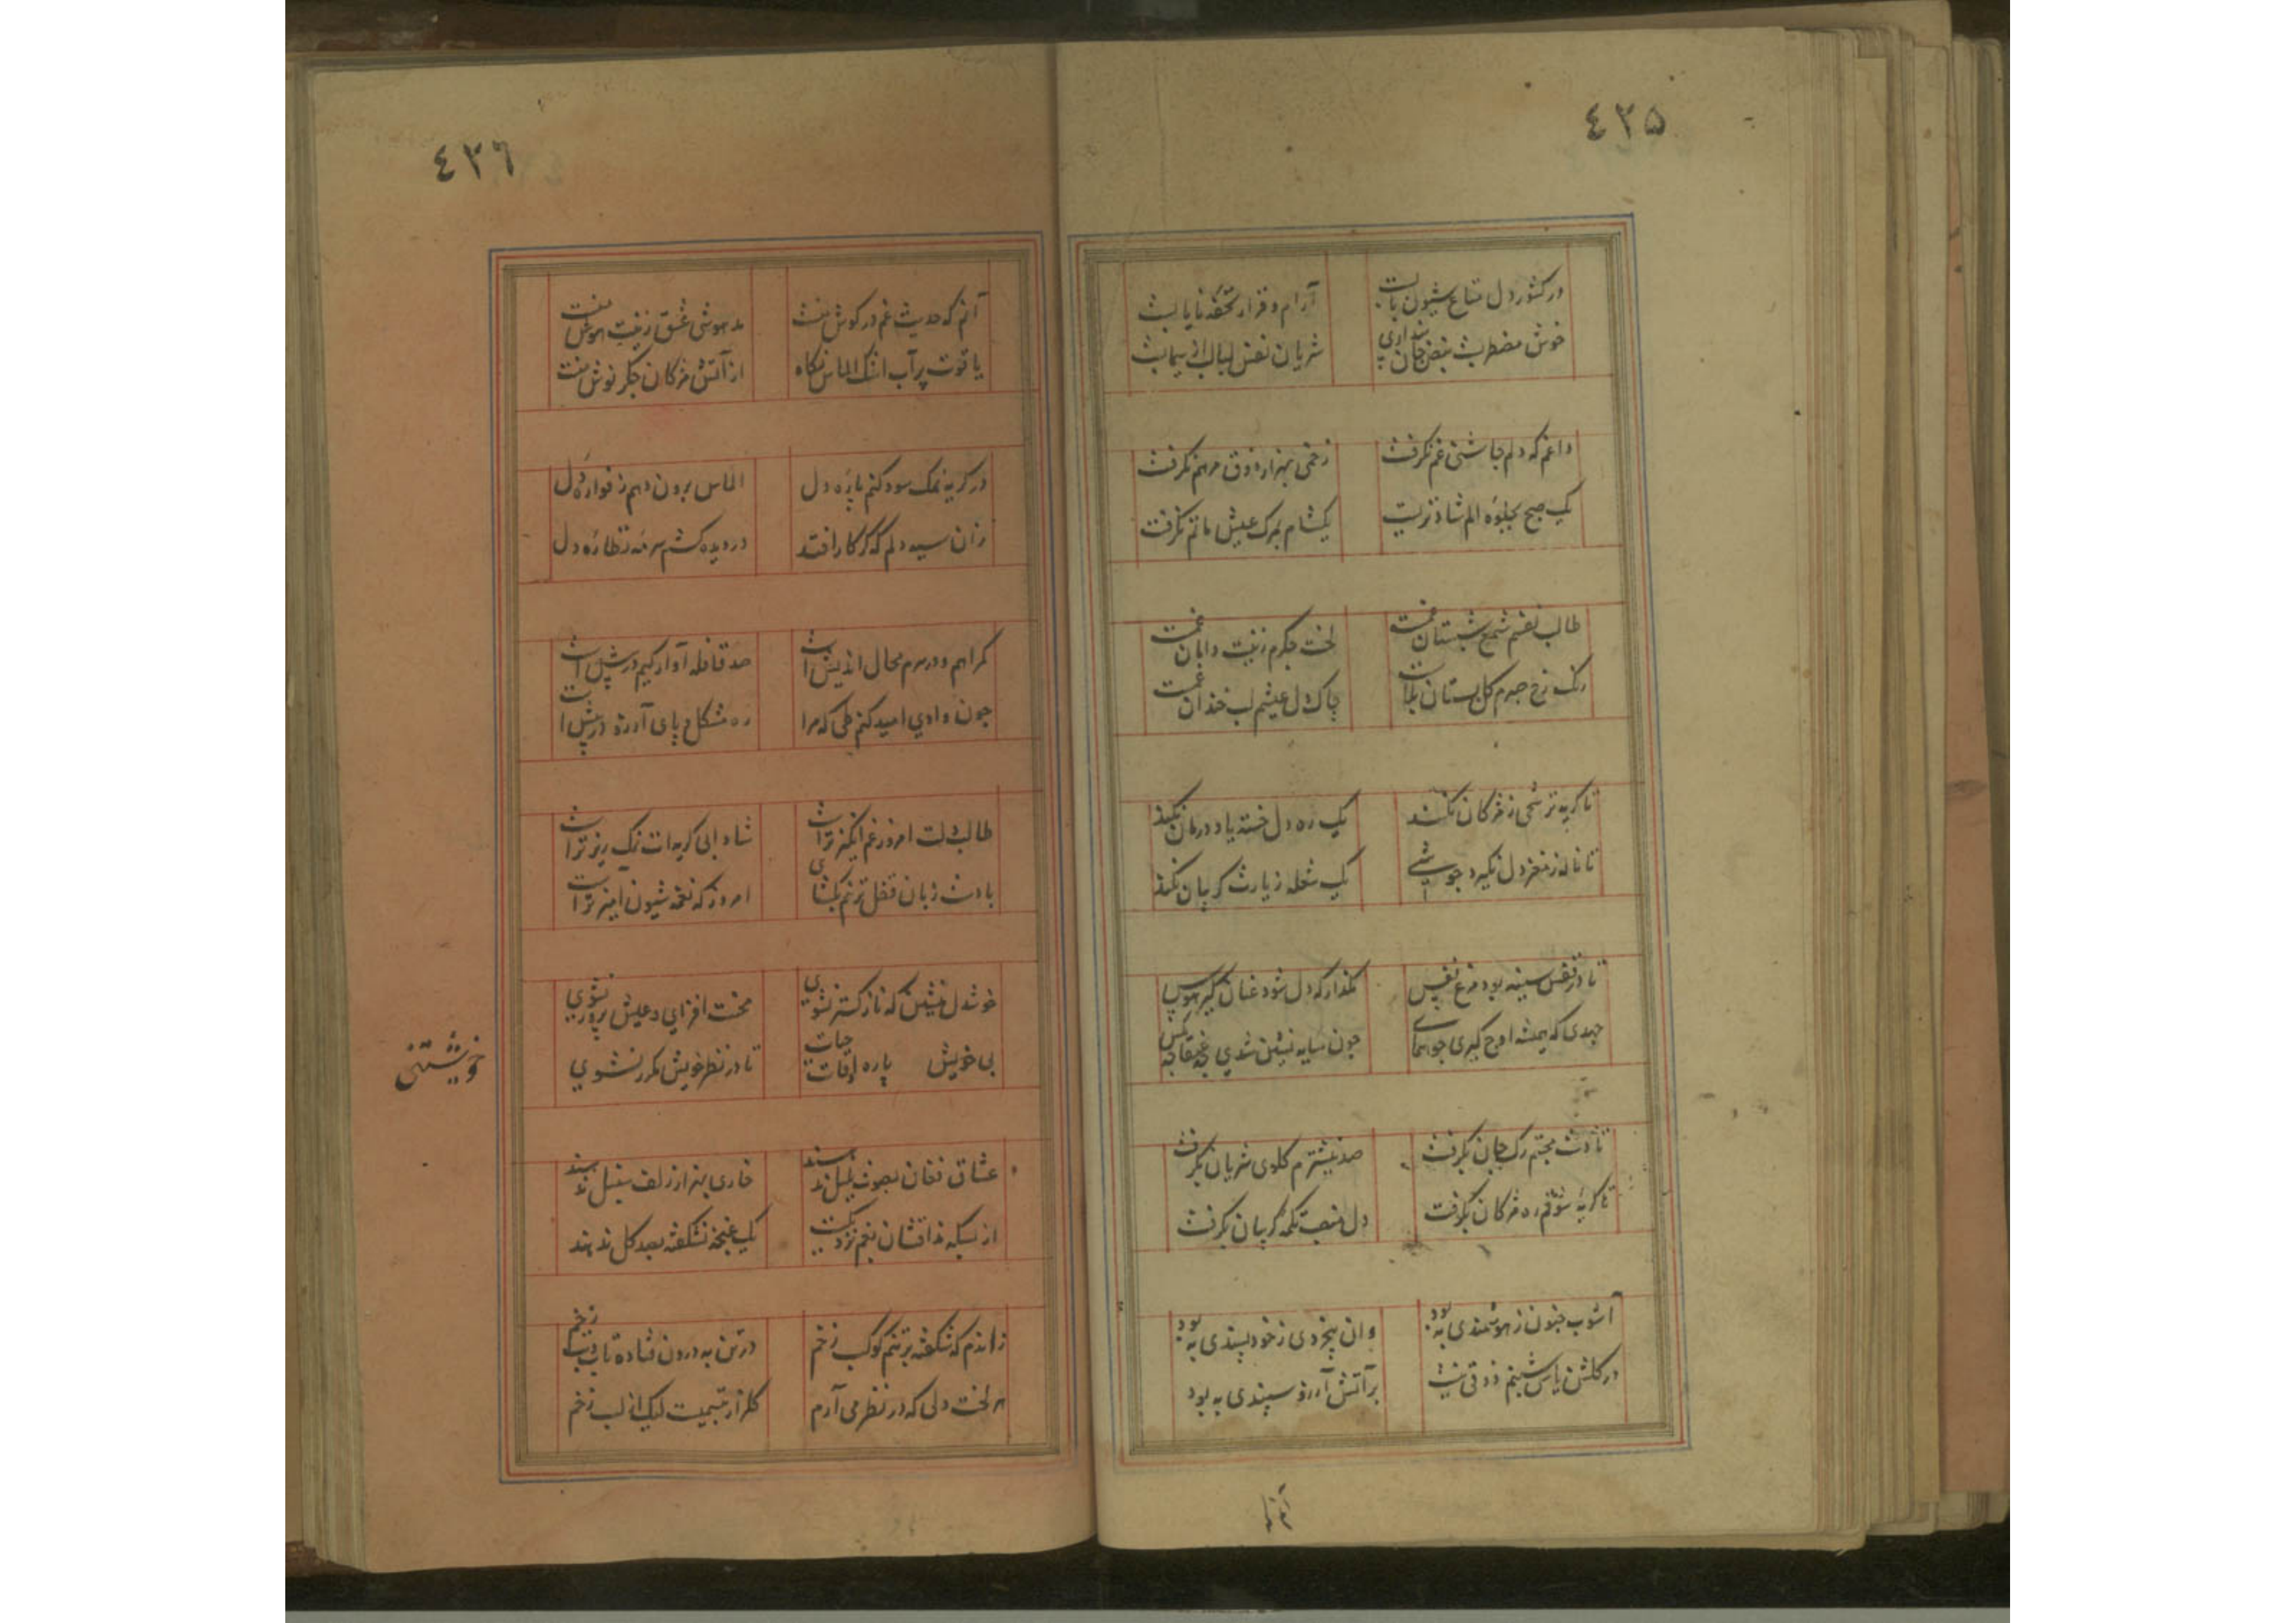 ٤٣٥
در کشور دل متاع شیون بابست
آرام و قرار تحفهٔ نایابست
خوش مضطربست نبض جان پنداری
شریان نفس لبالب از سیمابست
داغم که دلم چاشنی غم نگرفت
زخمی بهزار ذوق مرهم نگرفت
یک صبح بجلوهٔ الم شاد نزیست
یکشام بمرک عیش ماتم نگرفت
طالب نفسم شمع شبستان غمست
لخت جگرم زینت دامان غمست
رنک رخ صبرم گل بستان بلاست
چاک دل عیشم لب خندان غمست
تا گریه ترشحی ز مژکان نکند
یک ره دل خسته یاد درمان نکند
تا ناله ز مغز دل نگیرد جوشی
یک شعله زیارت گریبان نکند
تا در قفس سینه بود مرغ نفس
مگذار که دل شود عنان گیر هوس
جهدی که همیشه اوج گیری چو همای
چون سایه نشین شدی چه عنقا چه مگس
تا دست محبتم رک جان نگرفت
صد نیشترم گلوی شریان نگرفت
تا گریهٔ شوقم ره مژکان نگرفت
دل منصب تکمهٔ گریبان نگرفت
آشوب جنون ز هوشمندی به بود
وان بیخردی ز خود پسندی به بود
در گلشن یاس شبنم ذوقی نیست
بر آتش آرزو سپندی به بود
٤٣٦
آنم که حدیث غم در گوش منست
مدهوشی عشق زینت هوش منست
یاقوت پرآب اشک الماس نگاه
از آتش مژکان جگر نوش منست
در گریه نمک سود کنم پارهٔ دل
الماس برون دهم ز فوارهٔ دل
زان سیه دلم که گر کار افتد
در دیده کشم سرمهٔ نظارهٔ دل
گمراهم و در سرم محال اندیش است
صد قافله آوارگیم در پیش است
چون وادی امید کنم طی که مرا
ره مشکل و پای آرزو در پیش است
طالب دلت امروز غم انگیزتر است
شادابی گریه‌ات رنک ریزتر است
بادست زبان قفل ترنم بگشای
امروز که نغمه شیون آمیزتر است
خوشدل منشین که ناز گستر نشوی
محنت افزای و عیش پرور نشوی
بی خویش پاره اوقات حیات
تا در نظر خویش مکرر نشوی
خویشتن
عشاق فغان بصوت بلبل ندهند
خاری بهزار زلف سنبل ندهند
از بسکه مذاقشان بغم نزدیکست
یک غنچهٔ نشکفته بصد گل ندهند
زاندم که شکفته بر تنم کوکب زخم
در تن به درون فتاده تاب و تب زخم
هر لخت دلی که در نظر می آرم
گلزار تبسمیست لیک از لب زخم